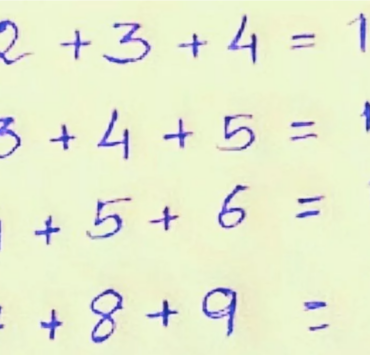 2 + 3 + 4 = 1
3 + 4 + 5 =
+ 5 + 6 =
+ 8 + 9 =